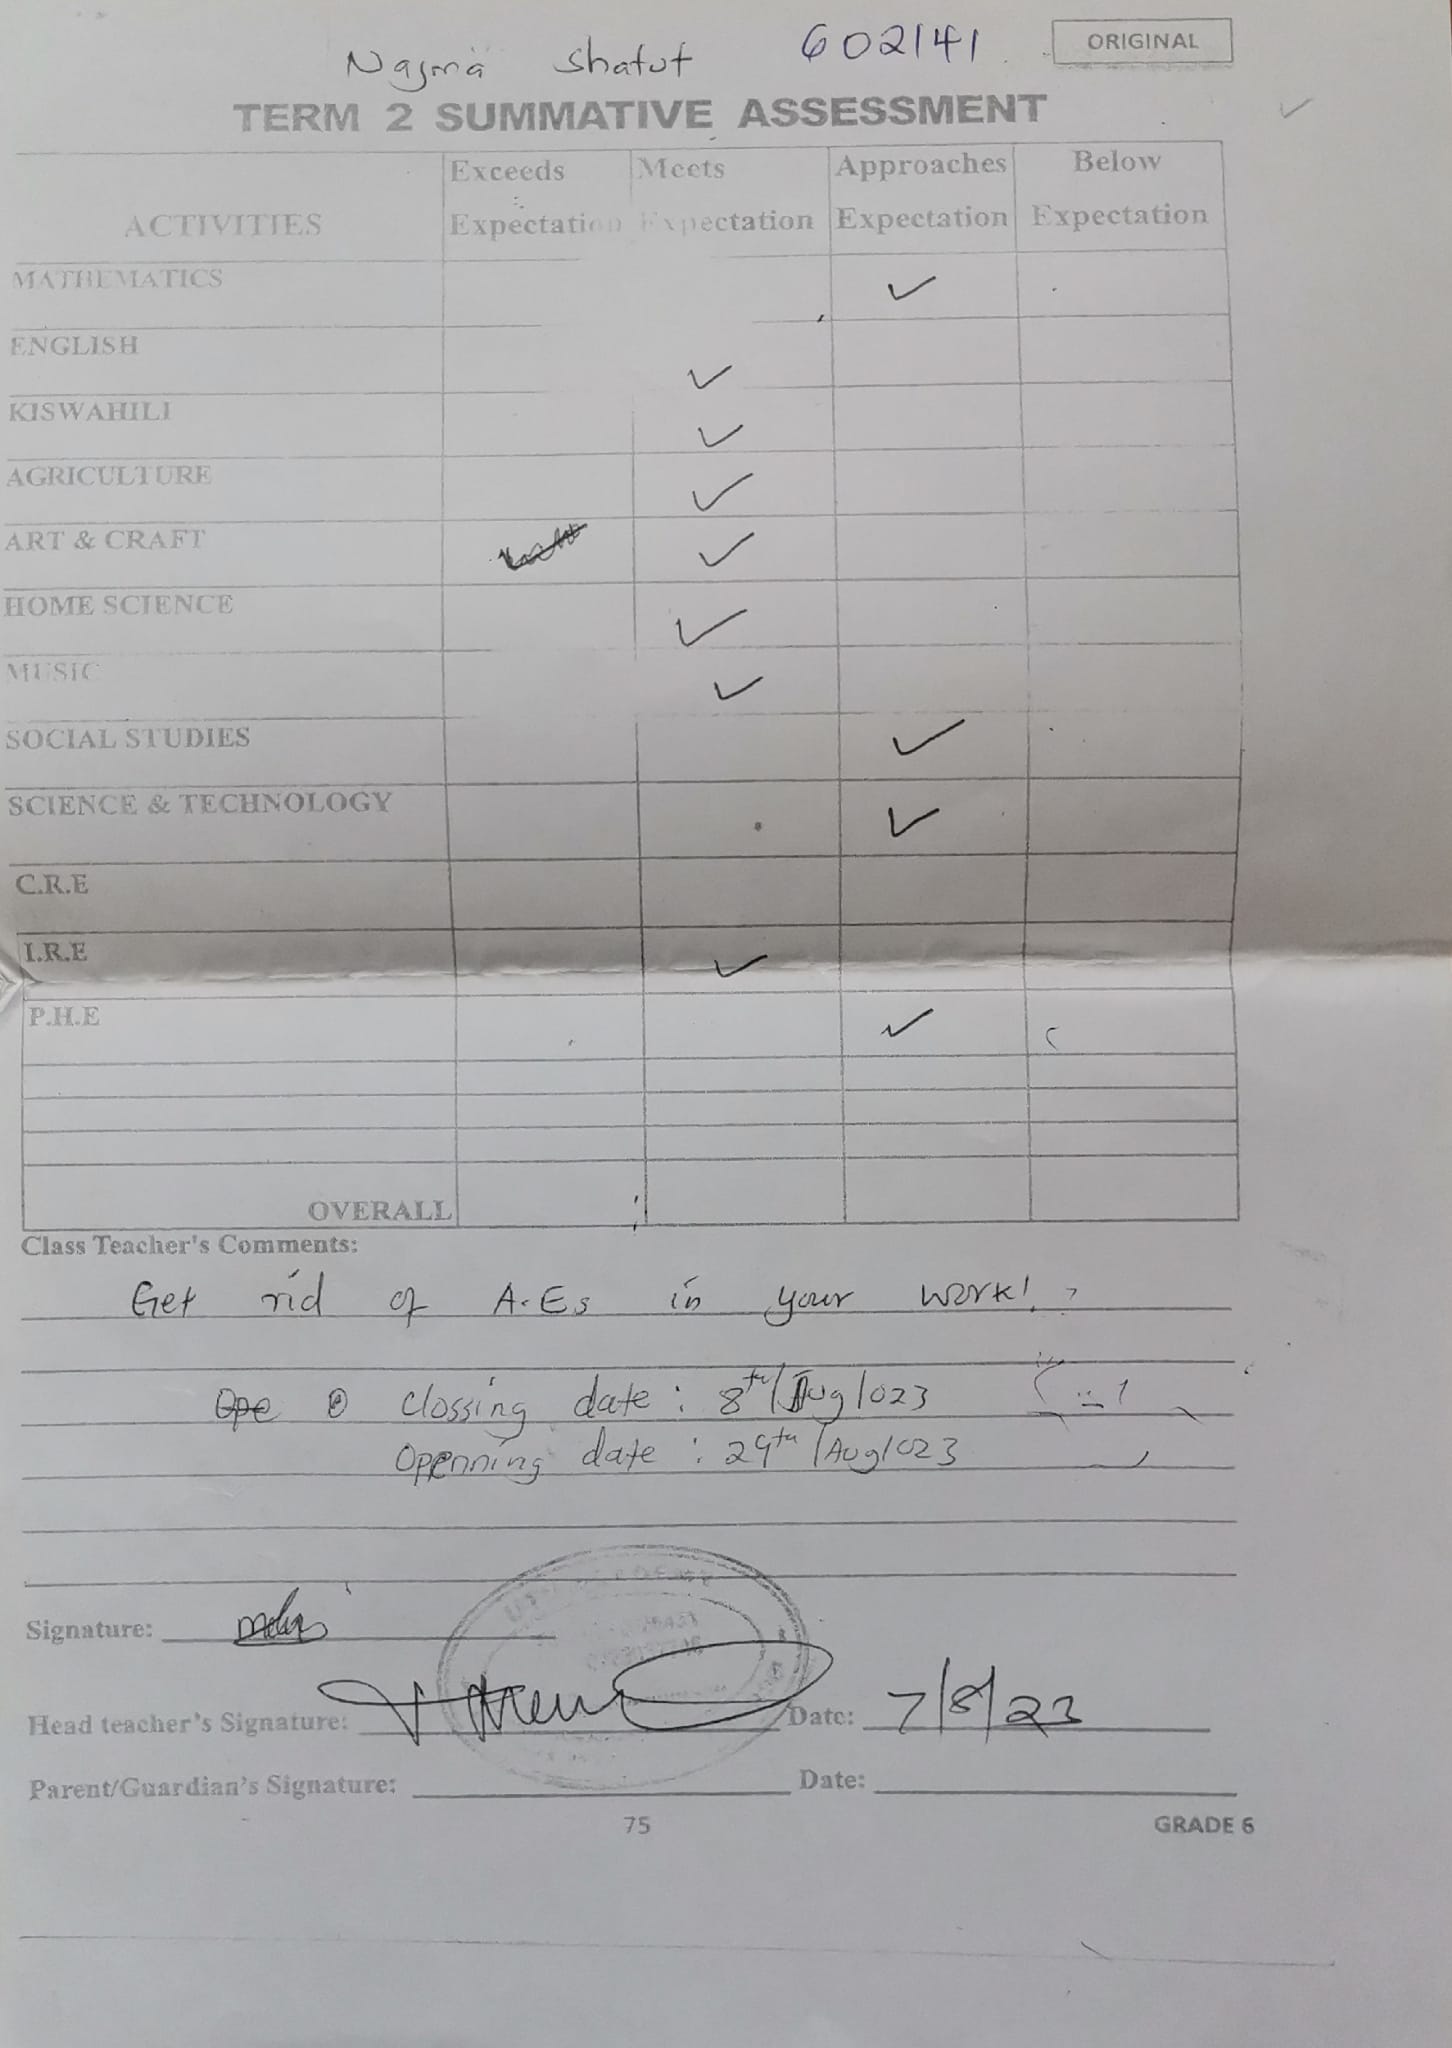 Najma Shatut 602141 ORIGINAL
TERM 2 SUMMATIVE ASSESSMENT
ACTIVITIES Exceeds Expectation Meets Expectation Approaches Expectation Below Expectation
MATHEMATICS ✓
ENGLISH ✓
KISWAHILI ✓
AGRICULTURE ✓
ART & CRAFT ✓
HOME SCIENCE ✓
MUSIC ✓
SOCIAL STUDIES ✓
SCIENCE & TECHNOLOGY ✓
C.R.E
I.R.E ✓
P.H.E ✓
OVERALL
Class Teacher's Comments:
Get rid of A.Es in your work!
Ope Clossing date: 8th/Aug/023
Openning date: 29th/Aug/023
Signature:
Head teacher's Signature: Date: 7/8/23
Parent/Guardian's Signature: Date:
75 GRADE 6